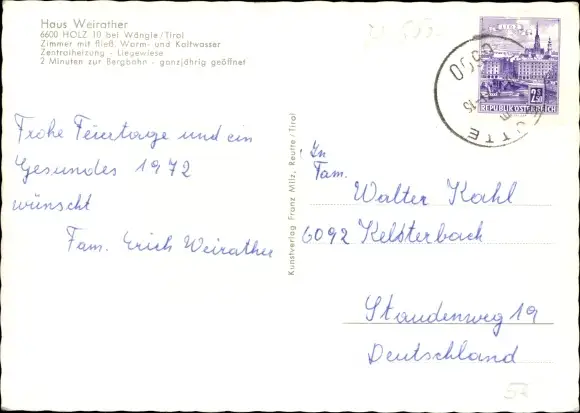 Haus Weirather
6600 HOLZ 10 bei Wängle/Tirol
Zimmer mit fließ. Warm- und Kaltwasser
Zentralheizung - Liegewiese
2 Minuten zur Bergbahn - ganzjährig geöffnet
Frohe Feiertage und ein
Gesundes 1972
wünscht
Fam. Erich Weirather
Kunstverlag Franz Milz, Reutte/Tirol
LINZ
2.50
REPUBLIK ÖSTERREICH
6600
REUTTE
An
Fam.
Walter Kahl
6092 Kelsterbach
Staudenweg 19
Deutschland